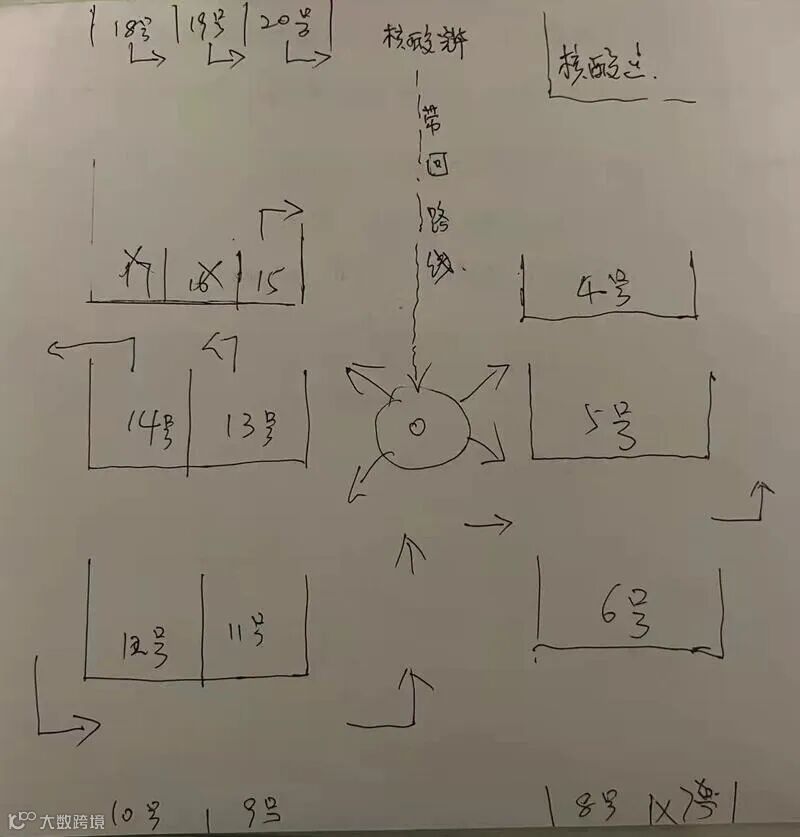 18号 19号 20号
核酸
核酸
带回路线
17 16 15
4号
14号 13号
5号
12号 11号
6号
10号 9号
8号 7号
大数跨境